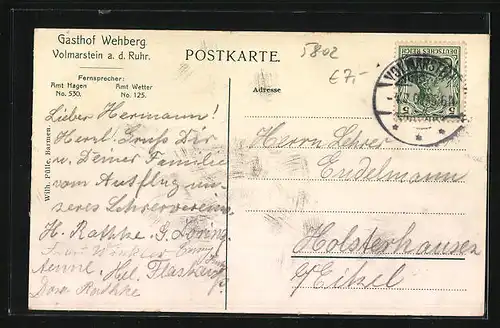 Gasthof Wehberg
Volmarstein a. d. Ruhr.
Fernsprecher:
Amt Hagen Amt Wetter
No. 530. No. 125.
POSTKARTE.
5802
€7,-
Adresse
DEUTSCHES REICH
5 5
VOLMARSTEIN
Wilh. Fülle, Barmen.
Lieber Hermann!
Herzl. Gruß Dir
u. Deiner Familie
vom Ausflug un-
seres Lehrervereins
H. Rathke. G. Döring
Frau Winkler
Hel. Flaskamp
Dora Rathke
Herrn Lehrer
Endelmann
Holsterhausen
b/Eikel